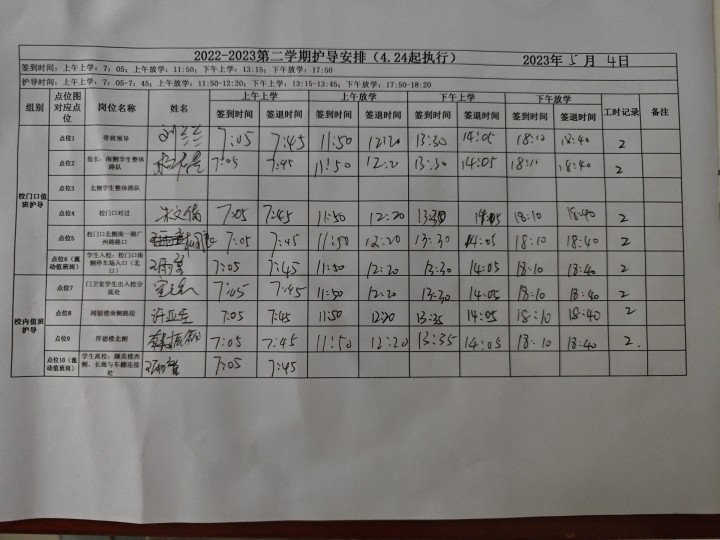 2022-2023第二学期护导安排（4.24起执行） 2023年 5 月 4日
签到时间：上午上学：7：05；上午放学：11:50；下午上学：13:15；下午放学：17:50
护导时间：上午上学：7：05-7：45；上午放学：11:50-12:20；下午上学：13:15-13:45；下午放学：17:50-18:20
组别 点位图对应点位 岗位名称 姓名 上午上学 上午放学 下午上学 下午放学 工时记录 备注
签到时间 签退时间 签到时间 签退时间 签到时间 签退时间 签到时间 签退时间
校门口值班护导
点位1 带班领导 刘兰兰 7:05 7:45 11:50 12:20 13:30 14:05 18:12 18:40 2
点位2 校长：南侧学生整体路队 7:05 7:45 11:50 12:20 13:30 14:05 18:11 18:40 2
点位3 北侧学生整体路队
点位4 校门口对过 7:05 7:45 11:50 12:20 13:30 14:05 18:10 18:40 2
点位5 校门口北侧南一路广州路路口 7:05 7:45 11:50 12:20 13:30 14:05 18:10 18:40 2
点位6（流动值班岗） 学生入校：校门口南侧停车场入口（北口） 7:05 7:45 11:50 12:20 13:30 14:05 18:10 18:40 2
校内值班护导
点位7 门卫室学生出入校分流处 7:05 7:45 11:50 12:20 13:30 14:05 18:10 18:40 2
点位8 南侧路段 7:05 7:45 11:50 12:20 13:35 14:05 18:10 18:40 2
点位9 厚德楼北侧 7:05 7:45 11:50 12:20 13:35 14:05 18:10 18:40 2
点位10（流动值班岗） 学生离校：撷英楼西侧、长廊与车棚连接处 7:05 7:45